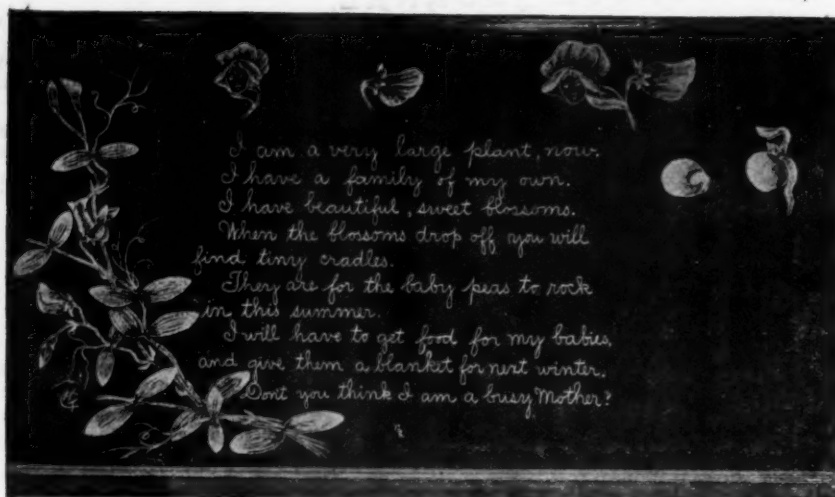 I am a very large plant, now.
I have a family of my own.
I have beautiful, sweet blossoms.
When the blossoms drop off, you will
find tiny cradles.
They are for the baby peas to rock
in this summer.
I will have to get food for my babies,
and give them a blanket for next winter.
Dont you think I am a busy Mother?